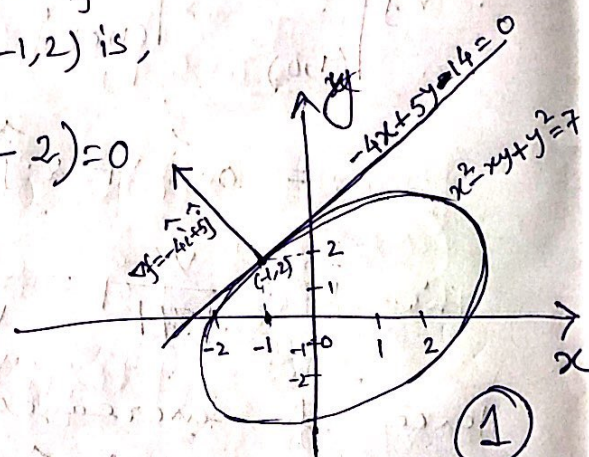 -1,2) is,
- 2)=0
y
-4x+5y-14=0
x²-xy+y²=7
∇f=-4î+5ĵ
(-1,2)
2
1
-2 -1 0 1 2
-1
-2
x
1